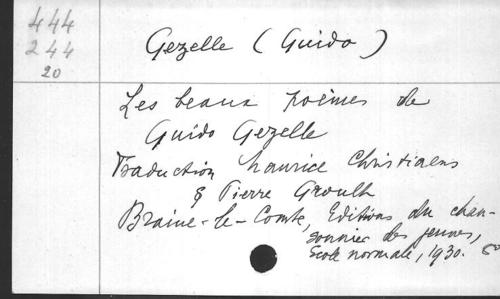 444
244
20
Gezelle (Guido)
Les beaux poèmes de
Guido Gezelle
Traduction Maurice Christiaens
& Pierre Groult
Braine-le-Comte, Editions du chan-
sonnier des jeunes,
Ecole normale, 1930.